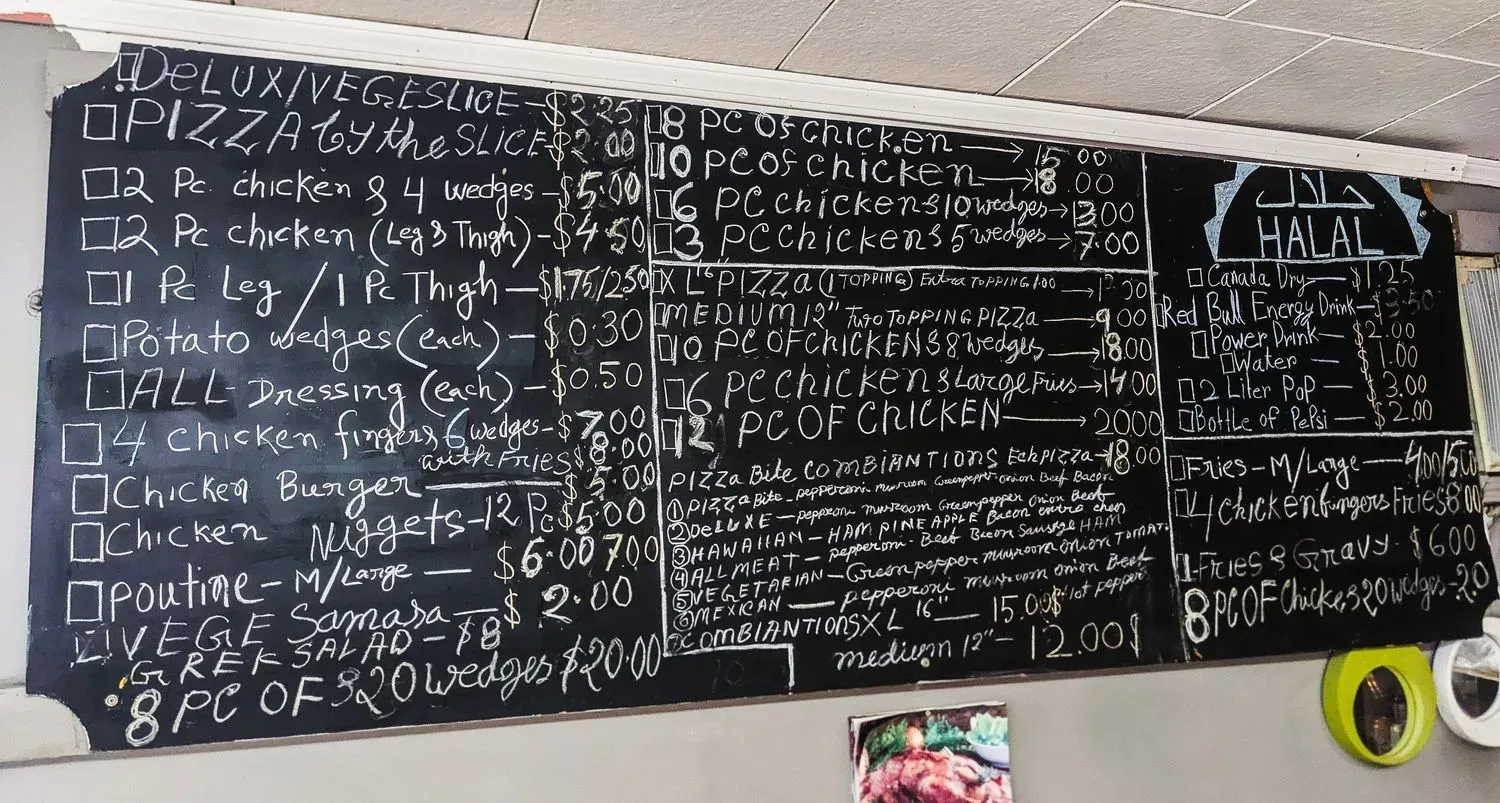 DeLUX/VEGESLICE - $2.25
PIZZA by the SLICE - $2.00
2 Pc. chicken & 4 wedges - $5.00
2 Pc chicken (Leg & Thigh) - $4.50
1 Pc Leg / 1 Pc Thigh - $175/250
Potato wedges (each) - $0.30
ALL - Dressing (each) - $0.50
4 chicken fingers 6 wedges - $7.00
with FRIES $8.00
Chicken Burger 5.00
Chicken Nuggets - 12 Pc $5.00
poutine - M/Large - $6.00 7.00
VEGE Samasa - $2.00
GREK SALAD - $8
8 PC OF & 20 wedges $20.00
8 PC OF chicken → 15.00
10 PC OF chicken → 18.00
6 PC chicken & 10 wedges → 13.00
3 PC chicken & 5 wedges → 7.00
XL 16" PIZZA (1 TOPPING) Extra TOPPING 1.00 →
MEDIUM 12" TWO TOPPING PIZZA → 9.00
10 PC OF CHICKEN & 8 wedges → 18.00
6 PC chicken & Large Fries → 14.00
12 PC OF CHICKEN → 2000
PIZZA Bite COMBIANTIONS EchPIZZA → 18.00
① PIZZA Bite - pepperoni musroom Greenpepper onion Beef Bacon
② DeLUXE - pepperoni musroom Greenpepper onion Beef
③ HAWAIIAN - HAM PINEAPPLE Bacon extra chees
④ ALL MEAT - pepperoni Beef Bacon Sausage HAM
⑤ VEGETARIAN - Green pepper musroom onion TOMAT
⑥ MEXICAN - pepperoni musroom onion Beef
Hot pepper
⑦ COMBIANTIONS XL 16" - 15.00$
medium 12" - 12.00$
حلال
HALAL
Canada Dry - $1.25
Red Bull Energy Drink - $3.50
Power Drink - $2.00
Water - $1.00
2 Liter Pop - $3.00
Bottle of Pepsi - $2.00
Fries - M/Large - 400/500
4 chicken fingers Fries 8.00
Fries & Gravy - $600
8 PC OF Chicke & 20 wedges - 20